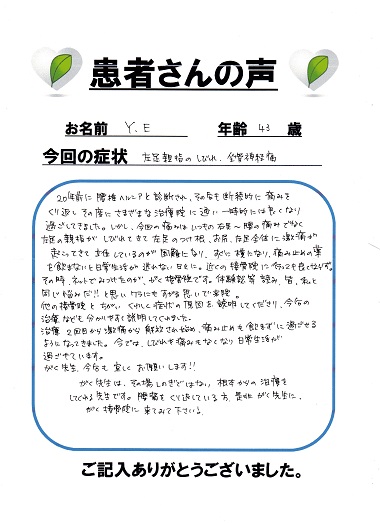 患者さんの声
お名前 Y.E 年齢 43 歳
今回の症状 左足親指のしびれ、坐骨神経痛
20年前に腰椎ヘルニアと診断され、その後も断続的に痛みを
くり返しその度にさまざまな治療院に通い一時的には良くなり
過ごしてきました。しかし、今回の痛みはいつもの右足〜腰の痛みでなく
左足の親指がしびれてきて左足のつけ根、お尻、左足全体に激痛が
起こってきて立っているのが困難になり、すぐに横になり、痛み止めの薬
を飲まないと日常生活が送れない日々に。近くの接骨院に行っても良くならず。
その時、ネットでみつけたのが、がく接骨院です。体験談等読み、皆、私と
同じ悩みだ!!と思いわらにもすがる思いで来院。
他の接骨院とちがい、くわしく症状の原因を説明してくださり、今後の
治療なども分かりやすく説明してくれました。
治療2回目から激痛から解放され始め、痛み止めも飲まずに過ごせる
ようになってきました。今では、しびれも痛みもなくなり日常生活が
過ごせています。
がく先生、今後も宜しくお願いします!!
がく先生は、その場しのぎではない、根本からの治療を
してくれる先生です。腰痛をくり返している方、是非がく先生に、
がく接骨院に来てみて下さい。
ご記入ありがとうございました。